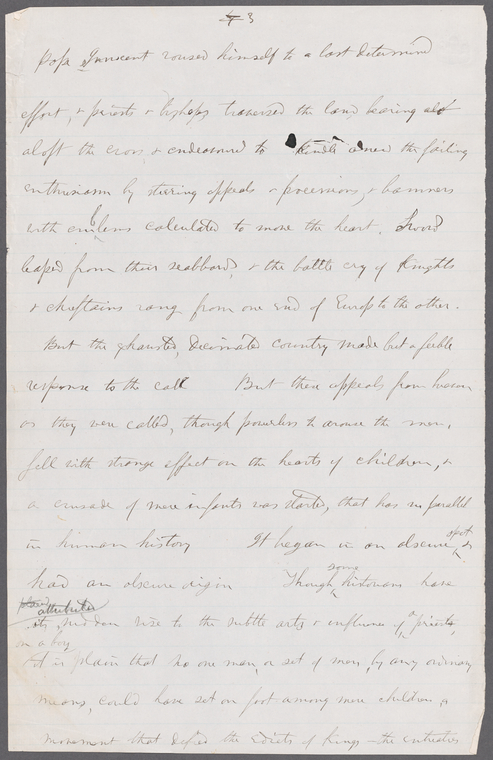 3
Pope Innocent roused himself to a last determined
effort, & priests & bishops traversed the land bearing
aloft the cross, & endeavored to kindle anew the failing
enthusiasm by stirring appeals & processions, & banners
with emblems calculated to move the heart. Swords
leaped from their scabbards, & the battle cry of Knights
& chieftains rang from one end of Europ to the other.
But the exhausted, decimated country made but a feeble
response to the call But these appeals from heaven
as they were called, though powerless to arouse the men,
fell with strange effect on the hearts of children, &
a crusade of mere infants was started, that has no parallel
in human history It began in an obscure spot, &
had an obscure origin Though some historians have
attributed
its sudden rise to the subtle arts & influence of a priest,
on a boy
it is plain that no one man, or set of men, by any ordinary
means, could have set on foot among mere children a
movement that defied the edicts of Kings - the entreaties